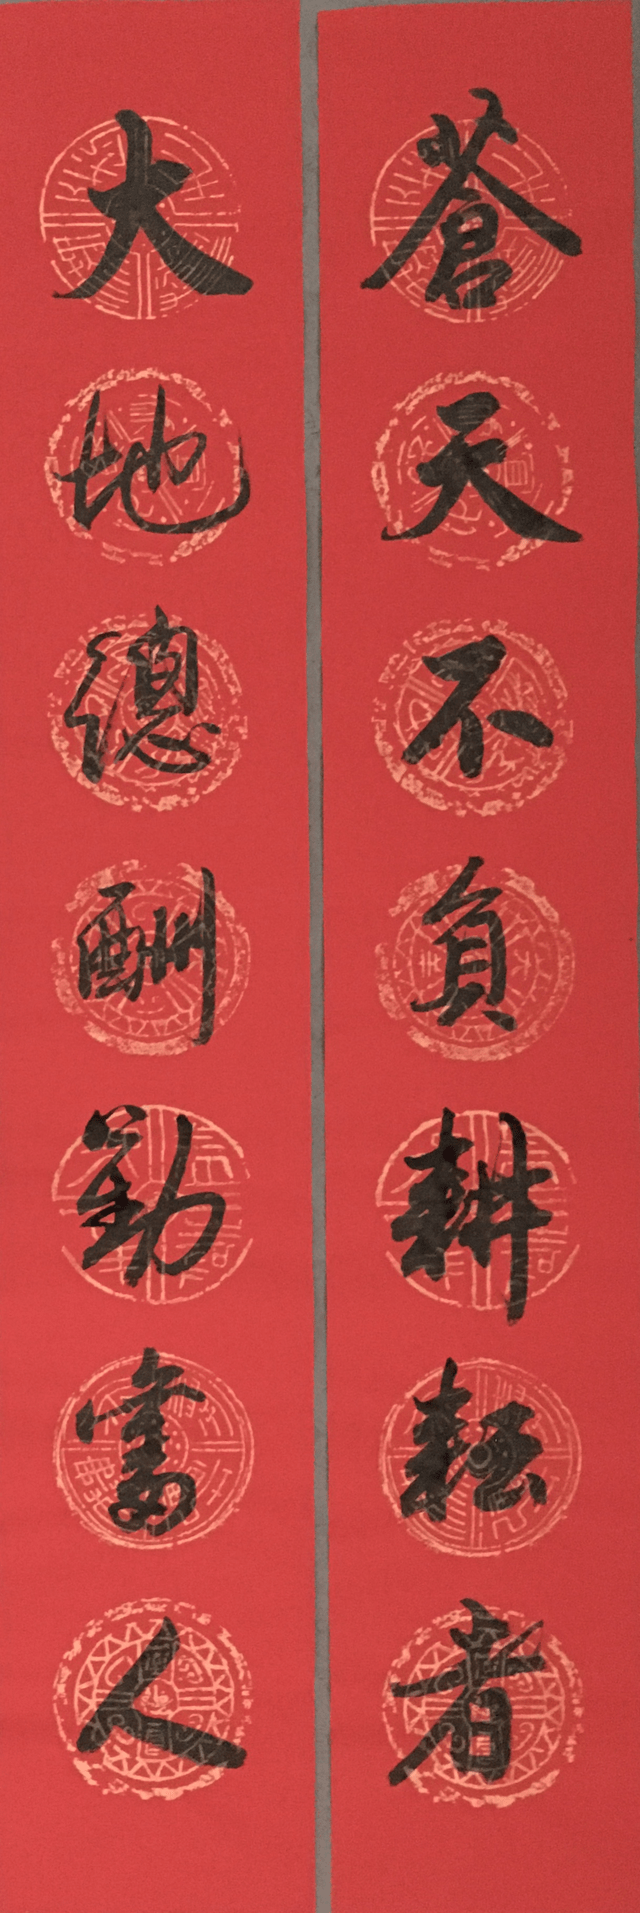 蒼天不負耕耘者
大地總酬勤奮人